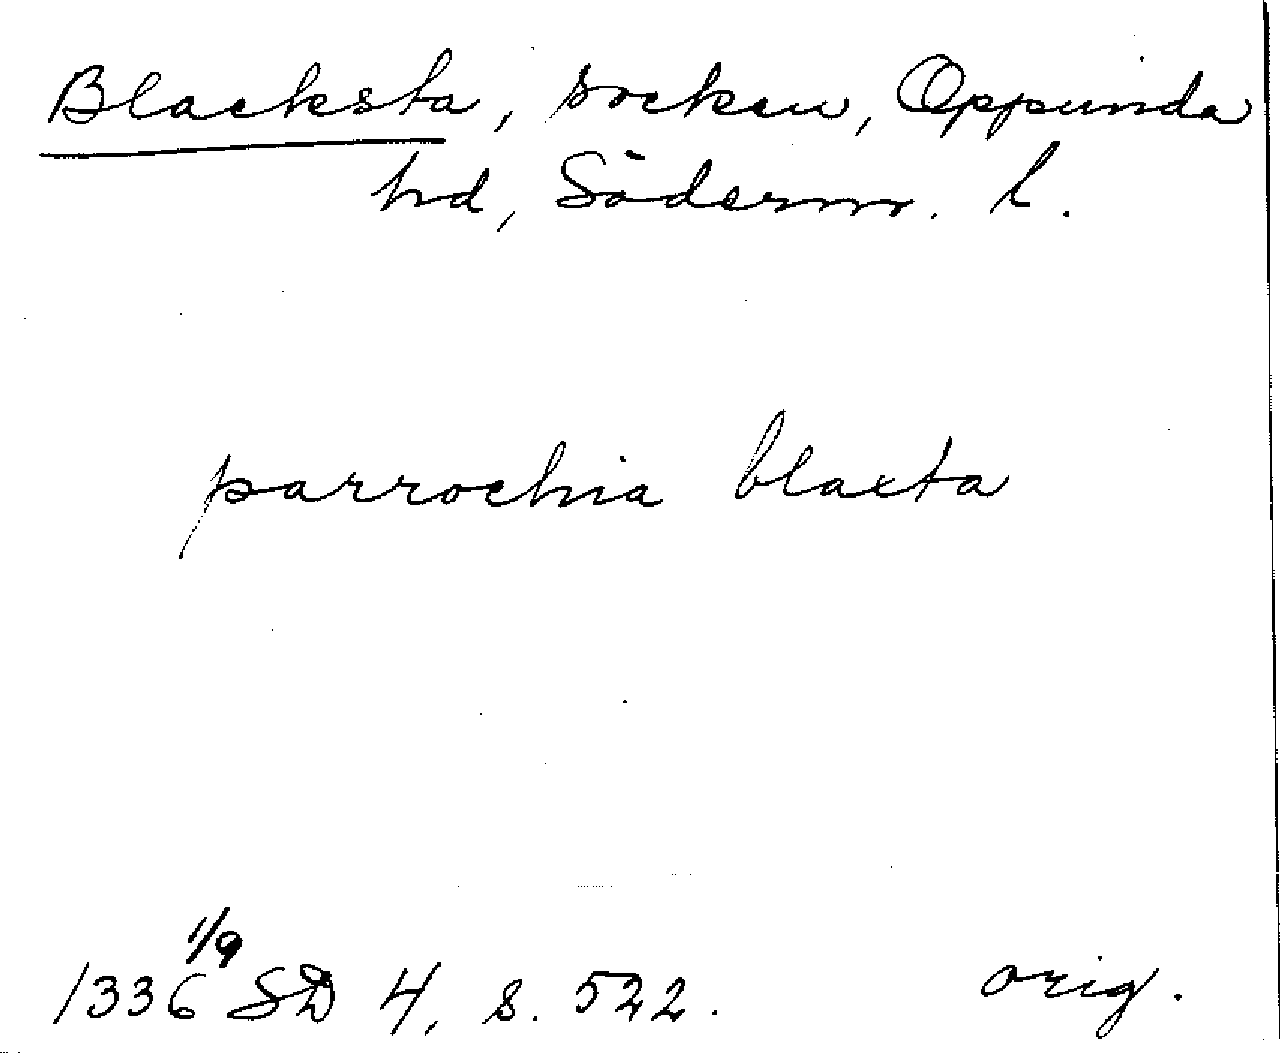 Blacksta, socken, Oppunda
hd, Söderm. l.
parrochia blaxta
1/9
1336 SD 4, s. 522. orig.